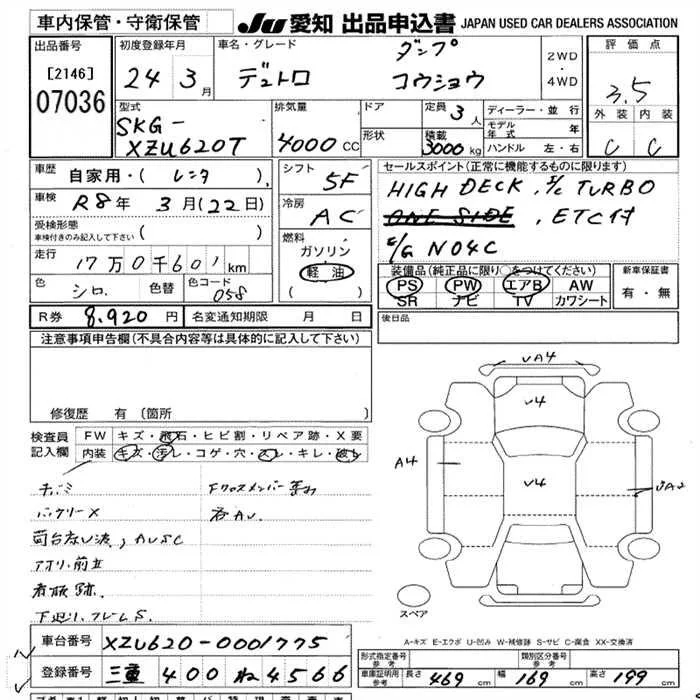 車内保管・守衛保管
JU 愛知 出品申込書 JAPAN USED CAR DEALERS ASSOCIATION
出品番号
[2146]
07036
初度登録年月
24 3月
車名・グレード
デュトロ
ダンプ
コウショウ
2WD
・
4WD
評価点
3.5
外装 内装
C C
型式
SKG-
XZU620T
排気量
4000 CC
ドア
形状
定員 3人
積載
3000 kg
ディーラー・並行
モデル年式 年
ハンドル 左・右
車歴 自家用・( レンタ )
車検 R8年 3月(22日)
受検形態
車検付きのみ記入して下さい ( )
走行 17万0千601km
色 シロ 色替 色コード 058
シフト 5F
冷房 AC
燃料
ガソリン
軽油
( )
セールスポイント(正常に機能するものに限ります)
HIGH DECK, I/C TURBO
ONE SIDE, ETC付
E/G N04C
装備品(純正品に限り○をつけてください)
PS PW エアB AW
SR ナビ TV カワシート
新車保証書
有・無
R券 8,920円 名変通知期限 月 日
後日品
注意事項申告欄(不具合内容等は具体的に記入して下さい)
修復歴 有 〔箇所
検査員記入欄
FW キズ・飛石・ヒビ割・リペア跡・X要
内装 キズ・汚レ・コゲ・穴・スレ・キレ・破レ
バッテリーX
看板跡
下廻り、フレームS
VA4
V4
A4
V4
スペア
A-キズ E-エクボ U-凹み W-補修跡 S-サビ C-腐食 XX-交換済
車台番号 XZU620-0001775
登録番号 三重 400 ね 4566
形式指定番号
参考
類別区分番号
参考
車庫証明用
参考
長さ 469 cm 幅 169 cm 高さ 199 cm